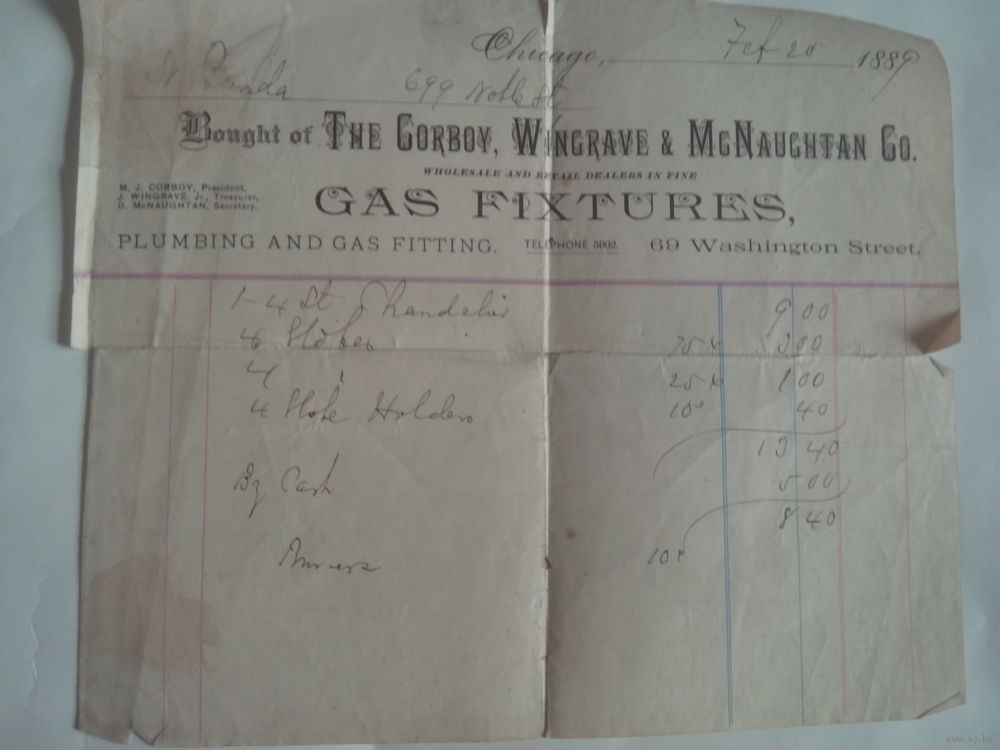 Chicago, Feb 20 1889
699 Noble St
Bought of THE CORBOY, WINGRAVE & McNAUGHTAN CO.
WHOLESALE AND RETAIL DEALERS IN FINE
M. J. CORBOY, President,
J. WINGRAVE, Jr., Treasurer,
D. McNAUGHTAN, Secretary.
GAS FIXTURES,
PLUMBING AND GAS FITTING. TELEPHONE 5002. 69 Washington Street,
1-4 St Chandelier 9 00
4 Globes 75 3 00
4 " 25 1 00
4 Globe Holders 10 40
13 40
By Cash 5 00
8 40
Burners 10
www.ay.by